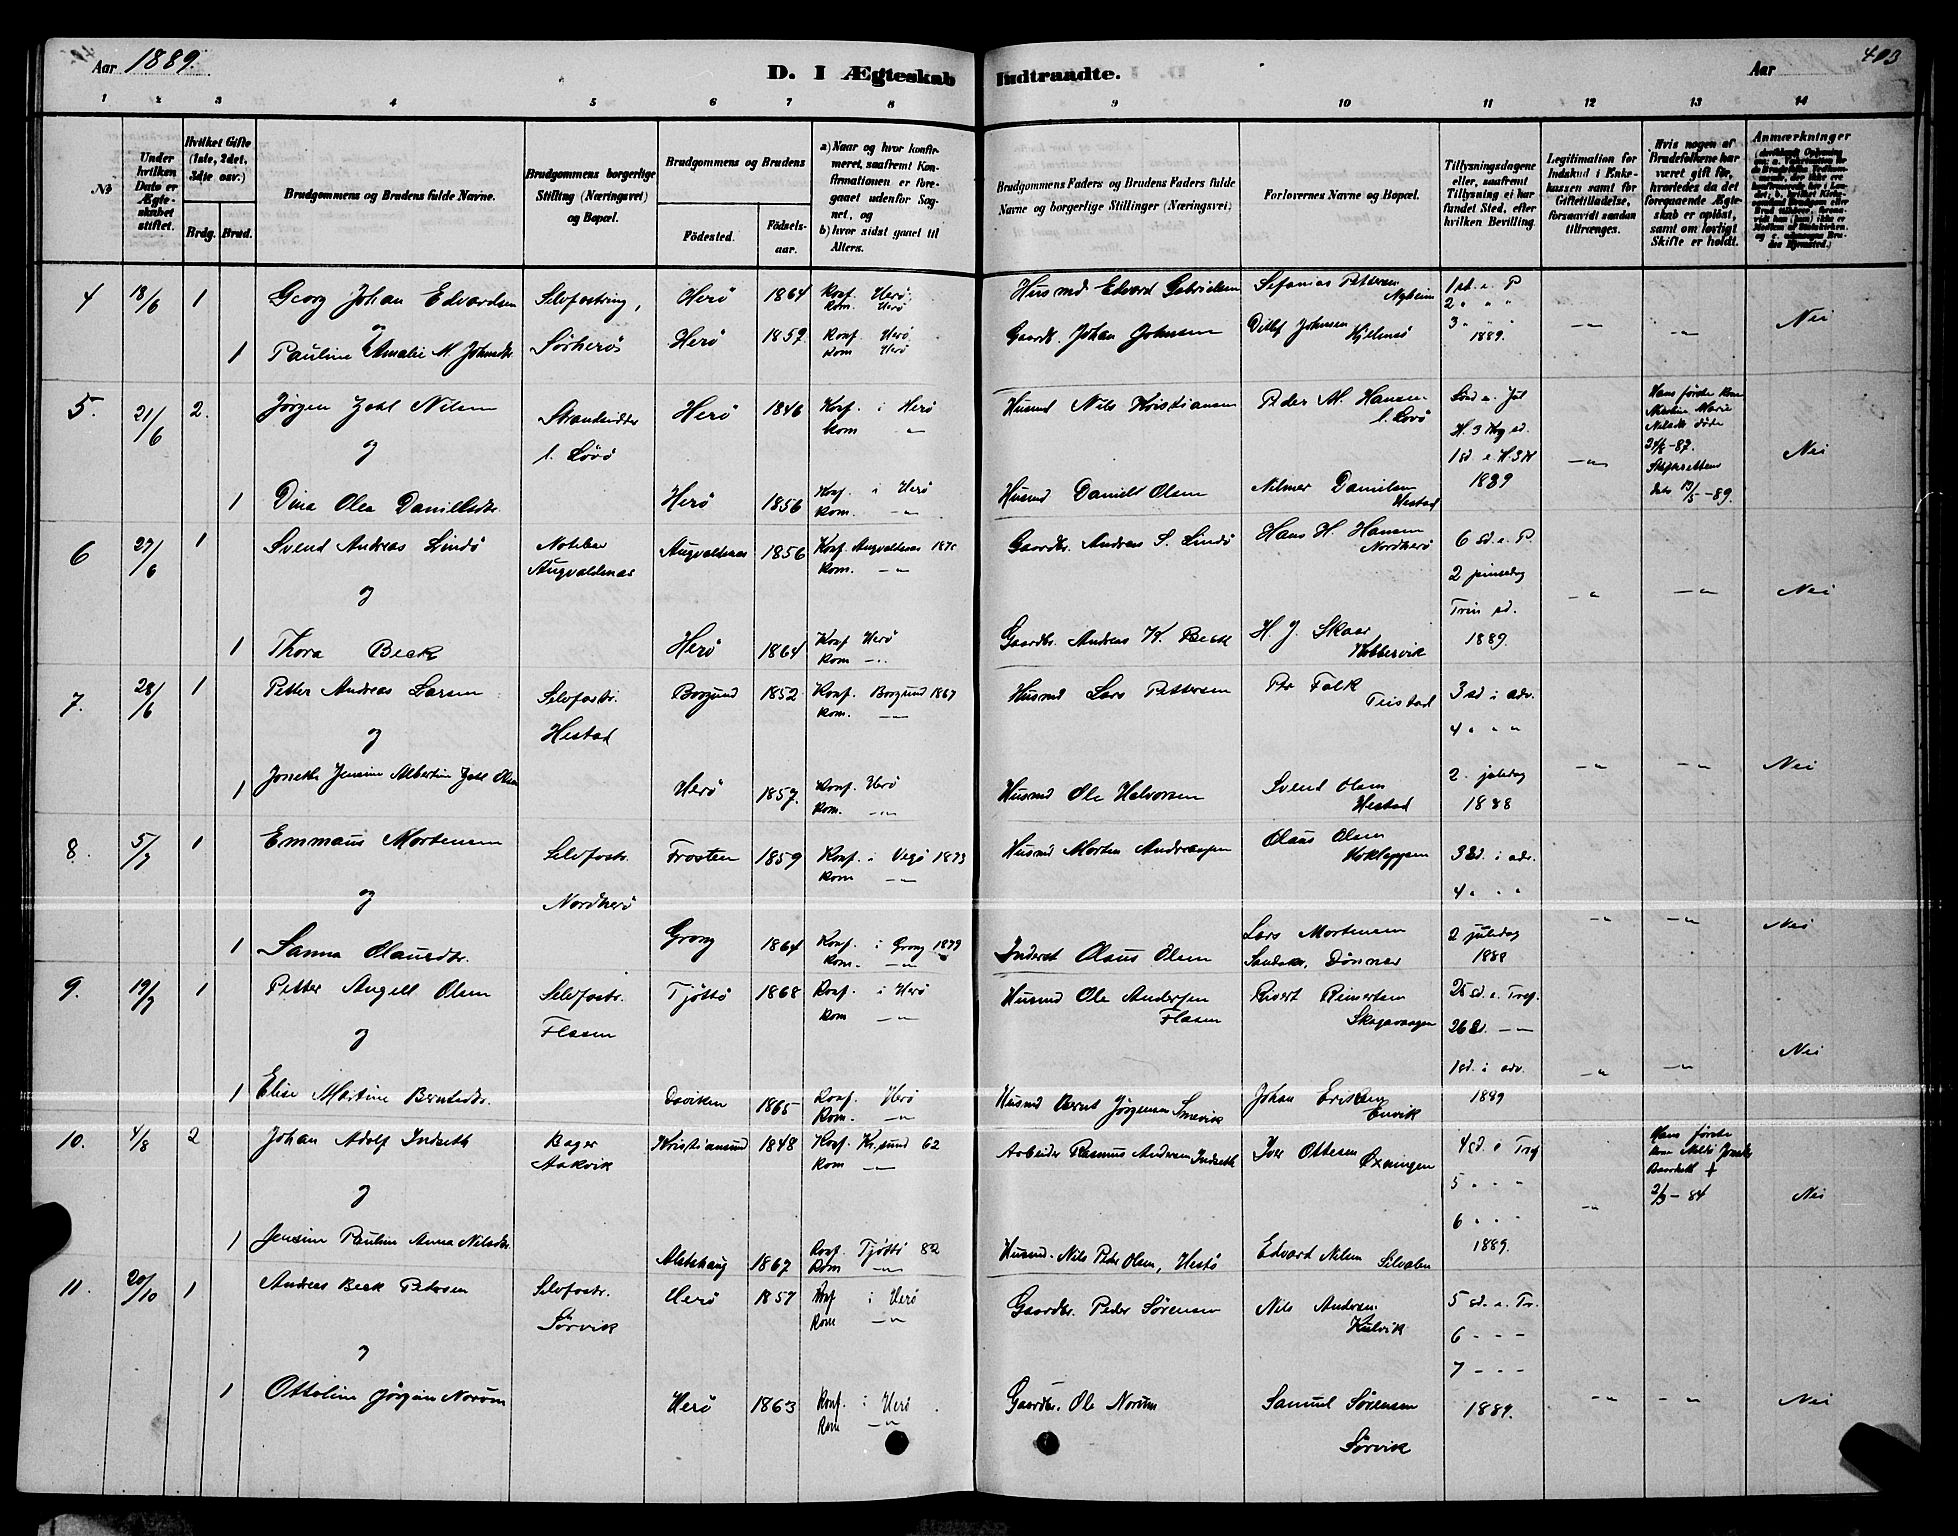 Aar 1889.
D. I Ægteskab Indtraadte.
Aar
403
1 2 3 4 5 6 7 8 9 10 11 12 13 14
No
Under hvilken Dato er Ægteskabet stiftet.
Hvilket Gifte (1ste, 2det, 3die osv.)
Brdg. Brud.
Brudgommens og Brudens fulde Navne.
Brudgommens borgerlige Stilling (Næringsvei) og Bopæl.
Brudgommens og Brudens
Fødested.
Fødselsaar.
a) Naar og hvor konfirmeret, saafremt Konfirmationen er foregaaet udenfor Sognet, og
b) hvor sidst gaaet til Alters.
Brudgommens Faders og Brudens Faders fulde Navne og borgerlige Stillinger (Næringsvei)
Forlovernes Navne og Bopæl.
Tillysningsdagene eller, saafremt Tillysning ei har fundet Sted, efter hvilken Bevilling
Legitimation for Indskud i Enkekassen samt for Giftetilladelse, forsaavidt saadan tiltrænges.
Hvis nogen af Brudefolkene har været gift før, hvorledes da det foregaaende Ægteskab er opløst, samt om lovligt Skifte er holdt.
Anmærkninger
4 18/6 1 Georg Johan Edvardsen Selvfostring, Herö 1864 Konf. Herö, Husmd Edvard Gabrielsen Sefanias Petersen Nyheim 1 sd. e. P
Kom. Herö 2 " " "
og 3 " " "
1 Pauline Amalie M. Johnsdtr Sörherö Herö 1857 Konf. Herö, Gaardb. Johan Johnsen Ditlef Johnsen Hjelmsö 1889. —"— —"— Nei
Kom Herö
5. 21/6 2. Jörgen Zahl Nilsen Strandsidder Herö 1846 Konf. i Herö Husmd Nils Kristiansen Peder M. Hansen Hans første Kone
l. Lovö Kom " l. Lovö
og H. 3 Kg sd. 24/8-87.
1 sd e H. 3 K —"— Nei
1 Dina Olea Danielsdtr. Herö 1856 Konf. i Herö Husmd Daniel Olsen Nilmer Danielsen 1889 dat. 13/5-89.
Kom. —"— Hestad
6 27/6 1 Svend Andreas Lindö Notebas Augvaldsnæs 1856 Konf. Augvaldsnæs Gaardbr. Andreas S. Lindö Hans H. Hansen 6 sd. e. P.
Augvaldsnæs Kom. —"— Nordherö
og 2 pinsedag
Trin sd. —"— —"— Nei
1 Thora Beck Herö 1864 Konf Herö Gaardbr. Andreas K. Beck H. J. Skaar 1889.
Kom —"— Kobbervik
7. 28/6 1 Petter Andreas Larsen Selvfostr. Borgund 1852 Konf. Borgund 1867 Husmd Lars Pettersen Per Falk 3 sd i adv.
Hestad Kom. —"— Teistad
og 4 " " "
1 Jonetta Jensine Albertine Zahl Olsen Herö 1857. Konf. Herö Husmd Ole Halvorsen Svend Olsen 2. juledag —"— —"— Nei
Kom. —"— Hestad 1888
8. 5/7 1 Emmaus Mortensen Selvfostr. Frosten 1859 Konf. i Vegö 1873 Husmd Morten Andreasen Olaus Olsen 3 Sd. i adv.
Nordherö Kom —"—
og 4 " " "
1 Sanna Olausdtr. Grong 1864 Konf. i Grong 1879 Inderst Olaus Olsen Lars Mortensen 2 juledag —"— —"— Nei
Kom. —"— Sandaker, Dönnæs 1888
9. 19/7 1 Petter Angell Olsen Selvfostr. Tjöttö 1868 Konf. i Herö Husmd Ole Andersen Rivert Reinertsen 25 sd. e. Tref.
Flasen Kom —"— Flasen Skagavaagen
og 26 Sd. —"—
1 sd. i adv. —"— —"— Nei
1 Elise Martine Berntsdtr. Daviken 1865 Konf. Herö Husmd Bernt Jörgensen Johan Eriksen 1889
Kom. —"—
10. 4/8 2 Johan Adolf Indseth Bager Kristiansund 1848 Konf. Kr.sund 62 Arbeider Rasmus Andersen Indseth Iver Ottesen Öxningen 4 sd e Tref Hans første
Aakvik Kom —"—
og 5 " " "
2/3-84 Nei
6 " " "
1 Jensine Pauline Anna Nilsdtr. Alstahaug 1867 Konf. Tjöttö 82 Husmd. Nils Peder Olsen, Hestö Edvard Nilsen Silvalen 1889.
Kom —"—
11. 20/10 1 Andreas Beck Pedersen Selvfostr. Herö 1857 Konf i Herö Gaardbr. Peder Sörensen Nils Andersen 5 sd. e. Tr.
Sörvik Kom —"— Kulvik
og 6 - - -
7 - - -
1 Ottoline Jörgine Norum Herö 1863 Konf. i Herö Gaardbr. Ole Norum Samuel Sörensen 1889. —"— —"— Nei
Kom —"— Sörvik